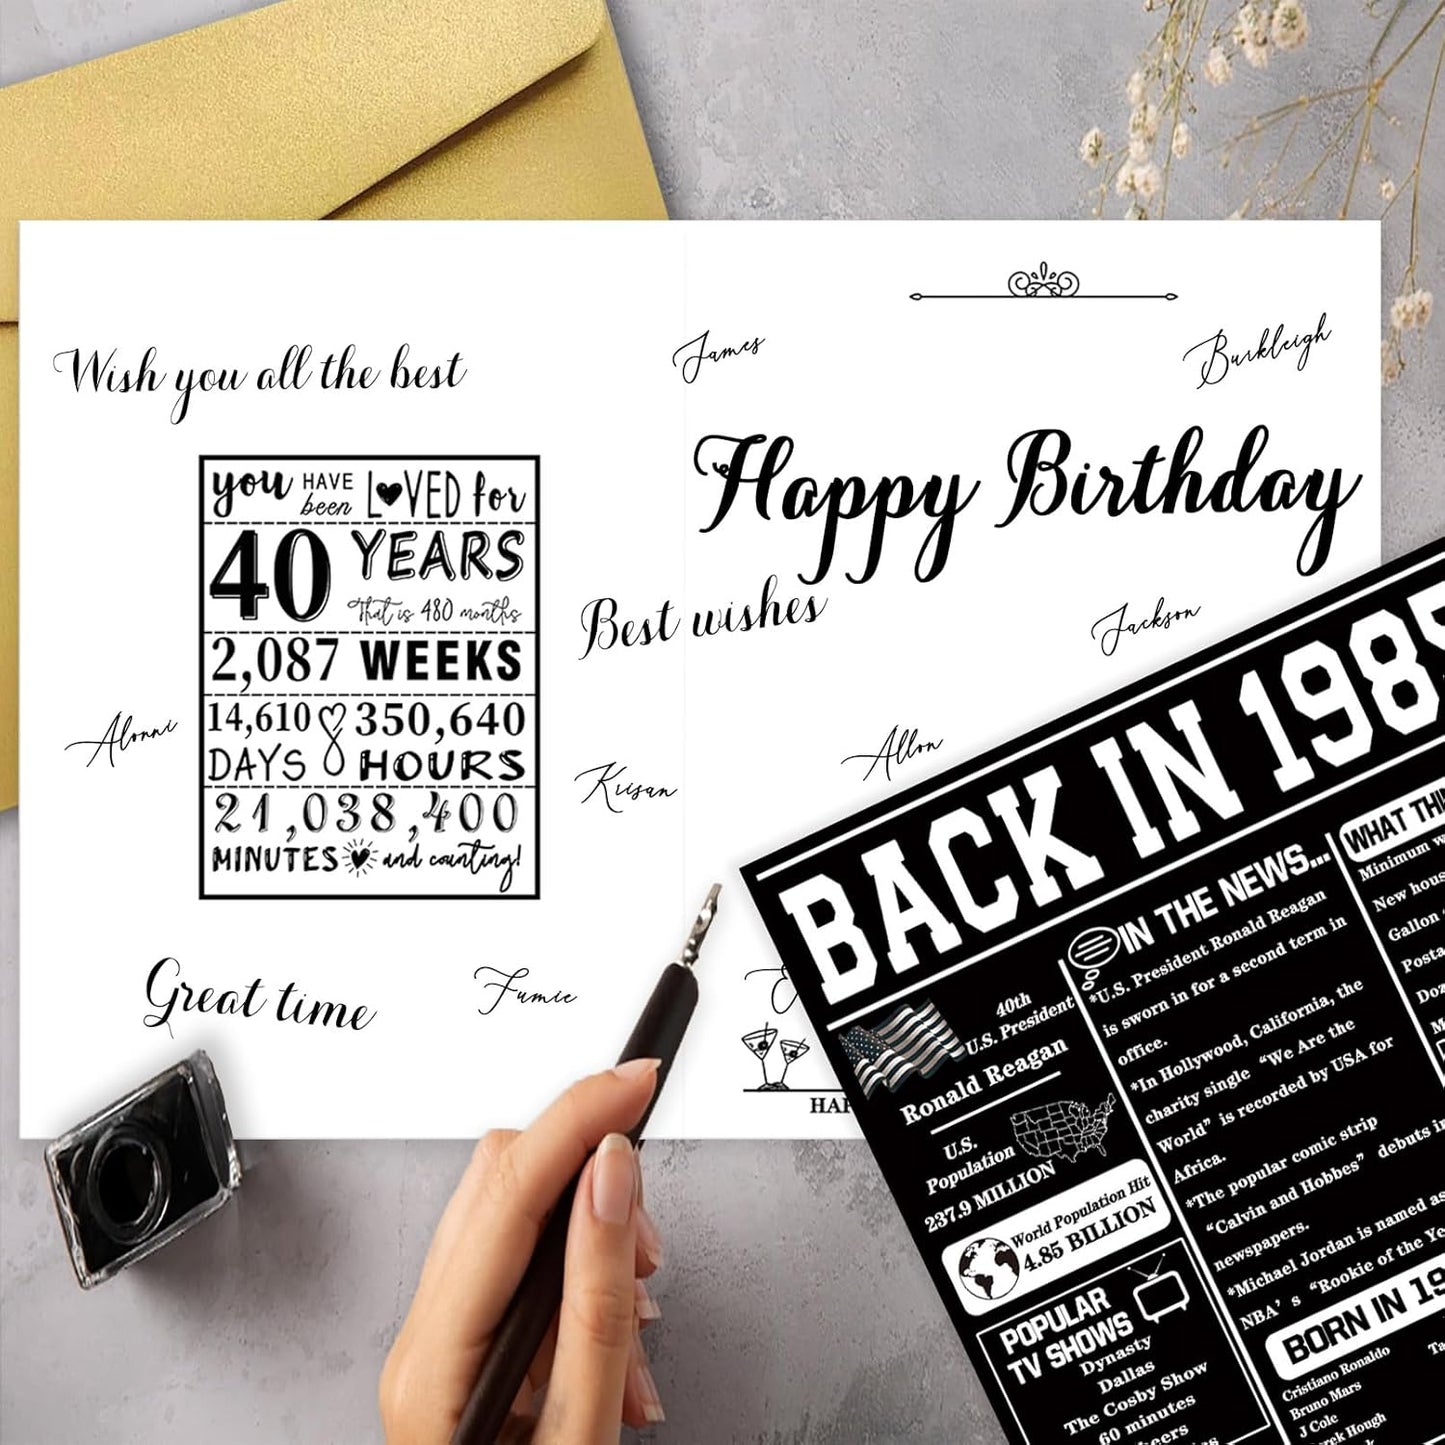 Wish you all the best
James
Burkleigh
Happy Birthday
you HAVE been LOVED for
40 YEARS
That is 480 months
2,087 WEEKS
14,610 DAYS
350,640 HOURS
21,038,400
MINUTES and counting!
Best wishes
Jackson
Alonni
Krisan
Allon
Great time
Fumie
HAP
BACK IN 1985
40th
U.S. President
Ronald Reagan
U.S.
Population
237.9 MILLION
World Population Hit
4.85 BILLION
POPULAR
TV SHOWS
Dynasty
Dallas
The Cosby Show
60 minutes
IN THE NEWS...
*U.S. President Ronald Reagan
is sworn in for a second term in
office.
*In Hollywood, California, the
charity single "We Are the
World" is recorded by USA for
Africa.
*The popular comic strip
"Calvin and Hobbes" debuts in
newspapers.
*Michael Jordan is named as
NBA's "Rookie of the Ye
BORN IN 19
Cristiano Ronaldo
Bruno Mars
J Cole
erek Hough
WHAT THI
Minimum w
New hous
Gallon
Posta
Doz